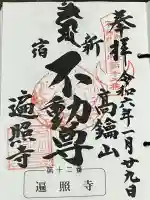 奉拝
令和六年一月廿九日
高鑰山
新
不動尊
宿
遍照寺
第十二番
遍照寺